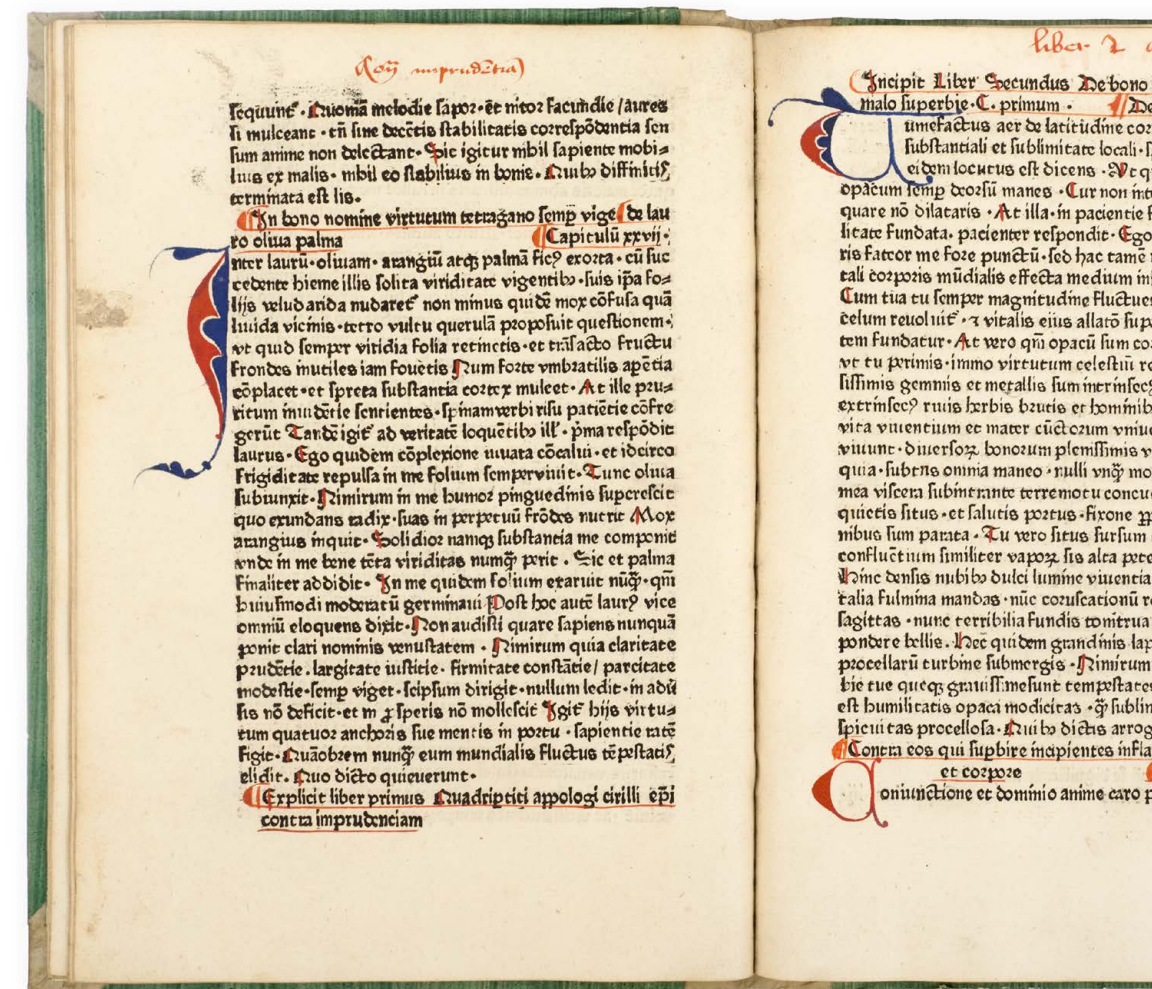 Con̄ imprudētia
sequunt᷑. Quoniā melodie sapor. et nitor facundie / aures
si mulceant. tn̄ sine decētis stabilitatis correspōdentia sen
sum anime non delectant. Sic igitur nihil sapiente mobi⸗
lius ex malis. nihil eo stabilius in bonis. Quibꝫ diffinitiꝭ
terminata est lis.
In bono nomine virtutum tetragano semꝑ vige de lau
ro oliua palma Capitulū xxvij.
Inter laurū. oliuam. arangiū atqꝫ palmā sicꝰ exorta. cū suc
cedente hieme illis solita viriditate vigentibꝫ. suis ip̄a fo⸗
lijs velud arida nudaret᷑ non minus quidē mox cōfusa quā
liuida vicinis. tetro vultu querulā proposuit questionem.
vt quid semper viridia folia retinetis. et trāsacto fructu
frondes inutiles iam fouetis Num forte vmbratilis apētia
cōplacet. et spreta substantia cortex mulcet. At ille pru⸗
ritum inuidētie sentientes. spinam verbi risu patiētie cōfre
gerūt Tandē igit᷑ ad veritatē loquētibꝫ ill'. p̄ma respōdit
laurus. Ego quidem cōplexione iuuata cōcalui. et idcirco
frigiditate repulsa in me folium semper viuit. Tunc oliua
subiunxit. Nimirum in me humor pinguedinis supercrescit
quo exundans radix. suas in perpetuū frōdes nutrit Mox
arangius inquit. Solidior namqꝫ substantia me componit
vnde in me bene tēta viriditas numq̄ perit. Sic et palma
finaliter addidit. In me quidem folium exaruit nūq̄. qm̄
huiusmodi moderatū germinaui Post hoc autē laurꝰ vice
omniū eloquens dixit. Non audisti quare sapiens nunquā
ꝓonit clari nominis venustatem. Nimirum quia claritate
prudētie. largitate iusticie. firmitate constātie / parcitate
modestie. semꝑ viget. seipsum dirigit. nullum ledit. in adū
sis nō deficit. et in ꝓsperis nō mollescit Igit᷑ hijs virtu⸗
tum quatuor anchoris sue mentis in portu. sapientie ratē
figit. Quāobrem nunq̄ eum mundialis fluctus tēpestatiꝭ
elidit. Quo dicto quieuerunt.
Explicit liber primus Quadriptiti appologi cirilli ep̄i
contra imprudenciam
liber 2
Incipit Liber Secundus De bono
malo superbie. C. primum. De
Tumefactus aer de latitudine cor
substantiali et sublimitate locali.
eidem locutus est dicens. Vt q
opacum semꝑ deorsū manes. Cur non int
quare nō dilataris. At illa. in pacientie f
litate fundata. pacienter respondit. Ego
ris fateor me fore punctū. sed hac tamē
tali corporis mūdialis effecta medium in
Cum tua tu semper magnitudine fluctues
celum reuoluit᷑. ⁊ vitalis eius allatō sup
tem fundatur. At vero qm̄ opacū sum co
vt tu perimis. immo virtutum celestiū re
sissimis gemmis et metallis sum intrinsecꝰ
extrinsecꝰ ruis herbis brutis et hominib
vita viuentium et mater cūctorum vniue
viuunt. diuersoꝝ bonorum plenissimis v
quia. subtus omnia maneo. nulli vnq̄ mo
mea viscera subintrante terremotu concu
quietis situs. et salutis portus. fixone ꝓp
nibus sum parata. Tu vero situs sursum
confluētium similiter vapoꝝ sis alta pete
Hinc densis nubibꝫ dulci lumine viuentia
talia fulmina mandas. nūc coruscationū r
sagittas. nunc terribilia fundis tonitrua
pondere bellis. Hec quidem grandinis lap
procellarū turbine submergis. Nimirum
bie tue queqꝫ grauissime sunt tempestates
est humilitatis opaca modicitas. q̄ sublim
spicuitas procellosa. Quibꝫ dictis arrog
Contra eos qui supbire incipientes infla
et corpore
Coniunctione et dominio anime caro p